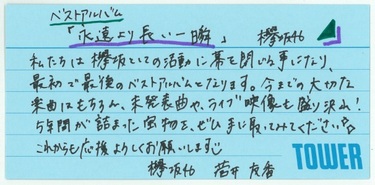 ベストアルバム
「永遠より長い一瞬」 欅坂46
私たちは欅坂としての活動に幕を閉じる事になり、
最初で最後のベストアルバムとなります。今までの大切な
楽曲にもちろん、未発表曲や、ライブ映像も盛り沢山!
5年間が詰まった宝物を、ぜひ手に取ってみてください☆
これからも応援よろしくお願いします
欅坂46 菅井友香
TOWER